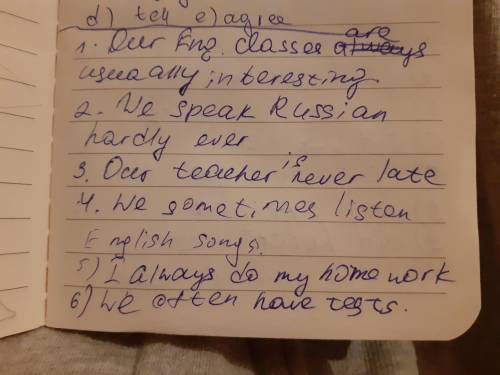 d) tell e) agree
1. Our Eng. classes are
usually interesting
2. We speak Russian
hardly ever
3. Our teacher is never late
4. We sometimes listen
English songs.
5) I always do my homework
6) We often have tests.